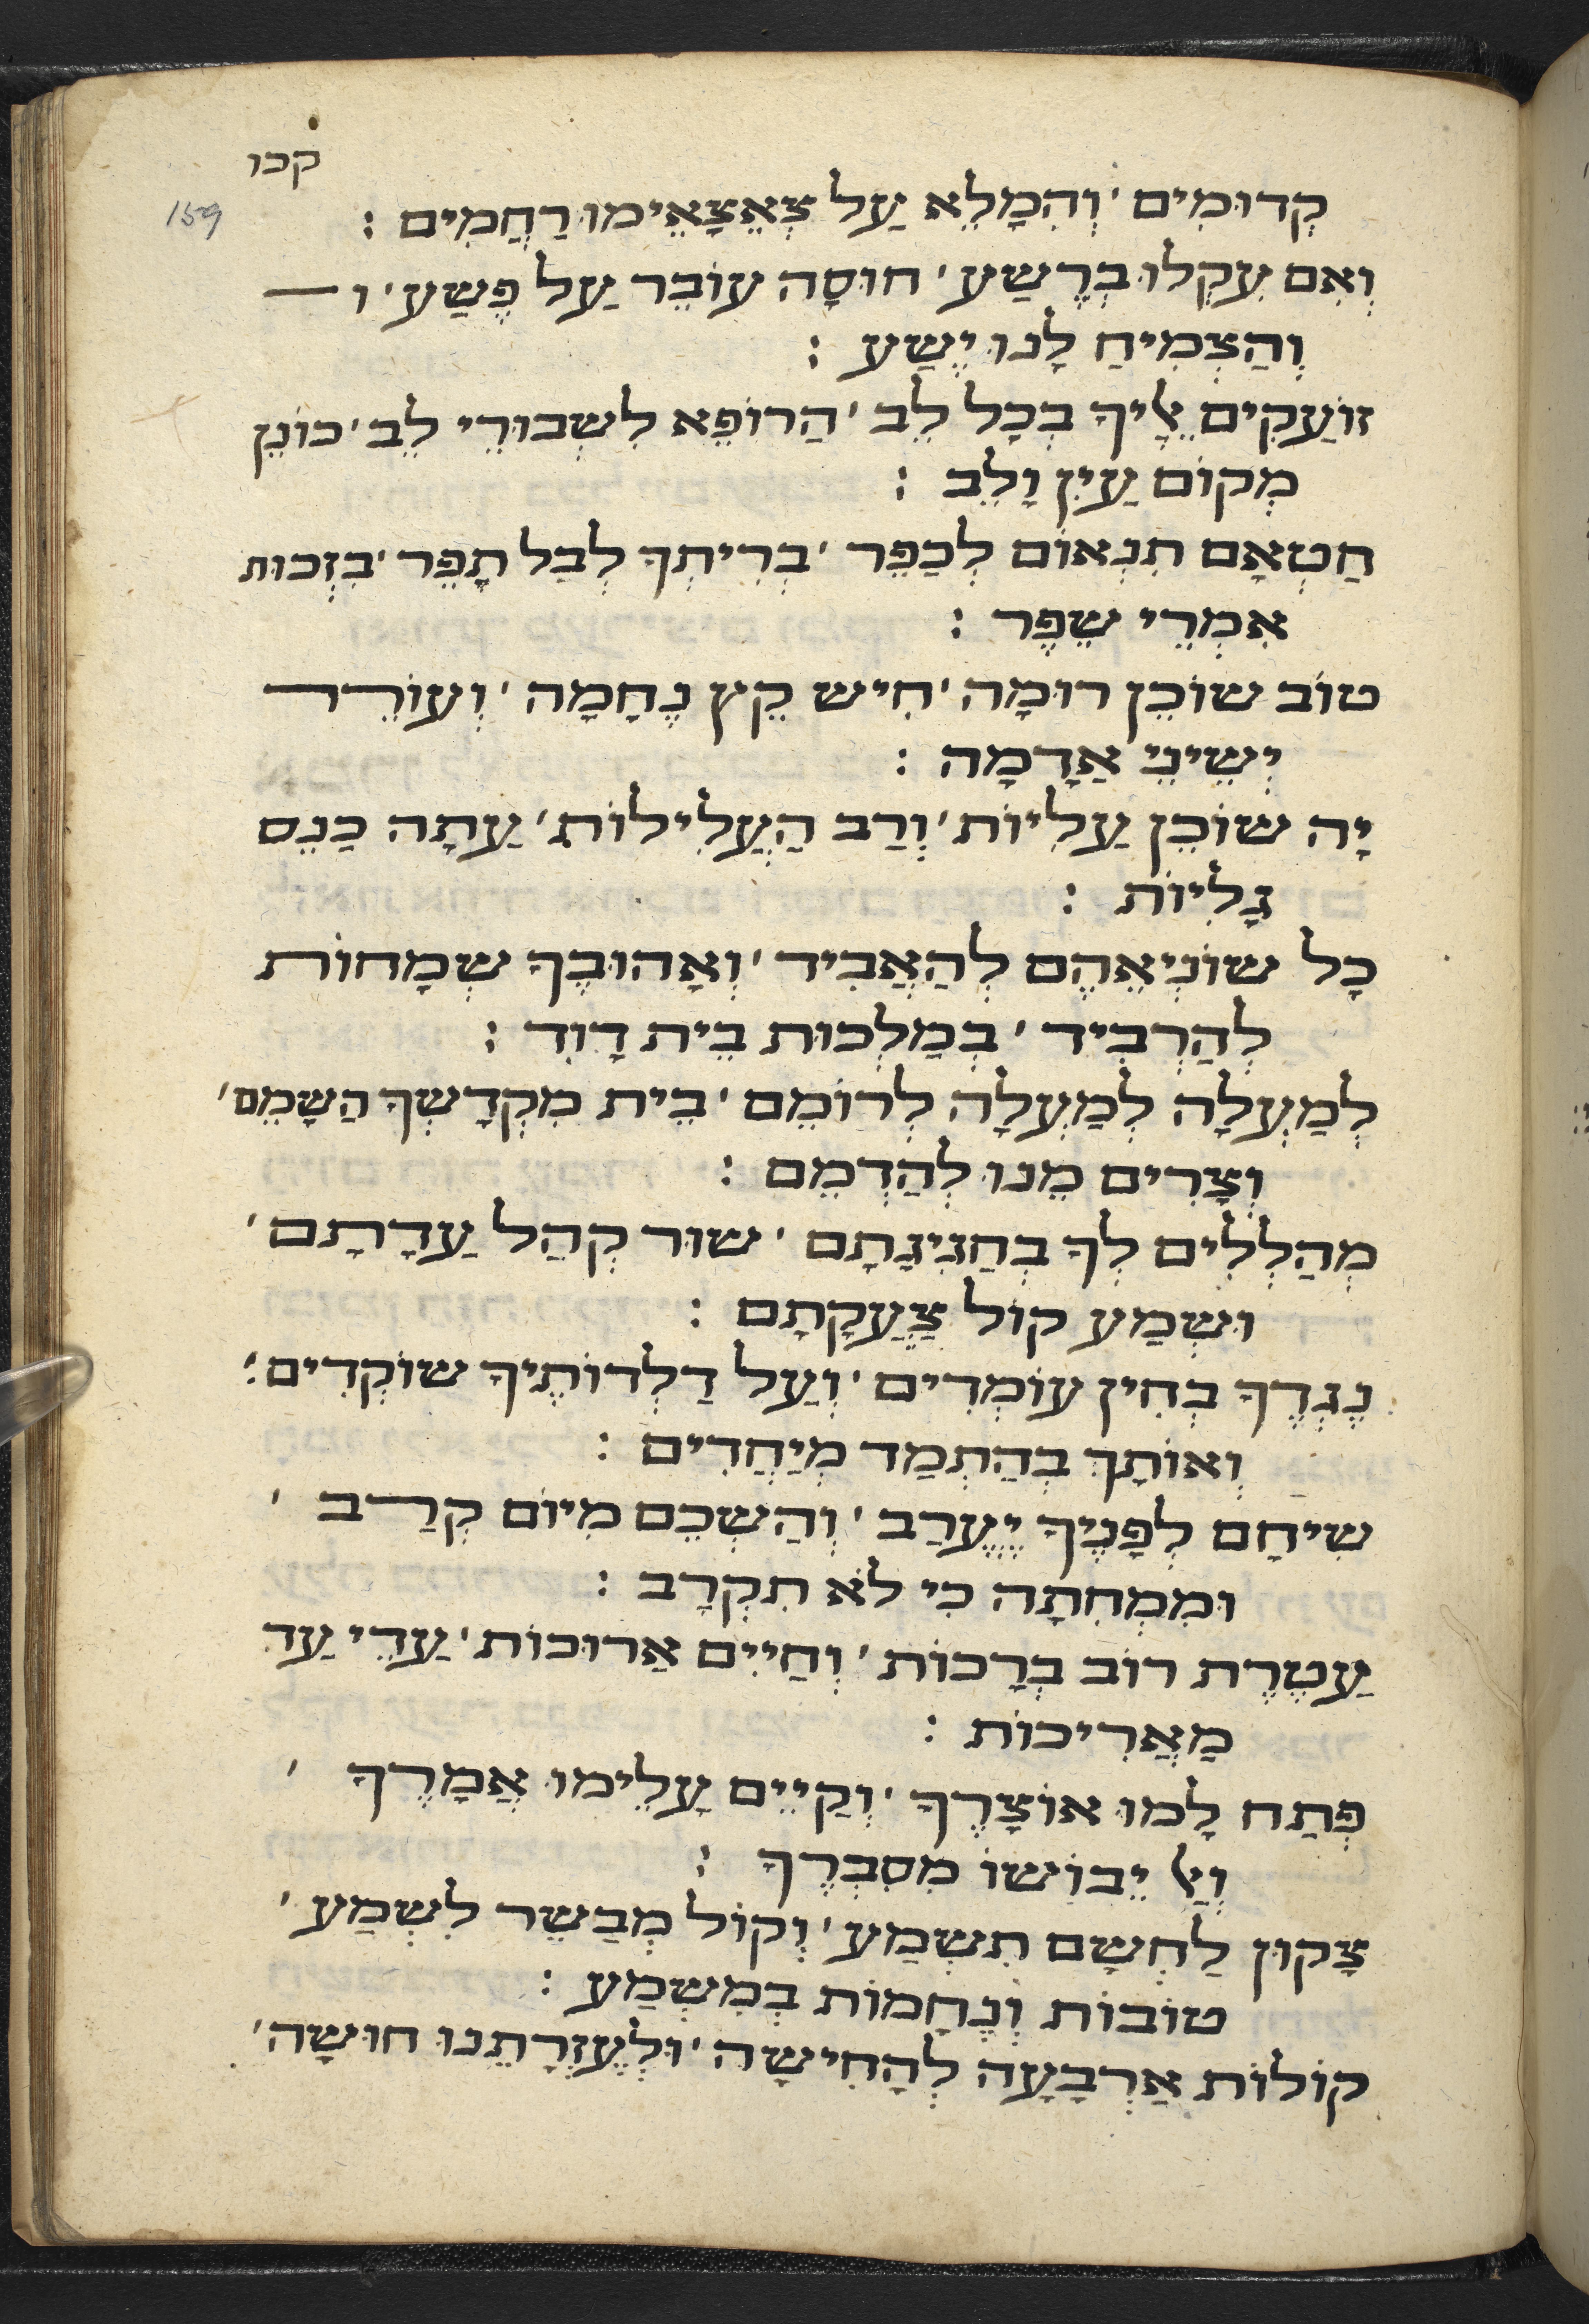 קכו
159
קְדוּמִים ׳ וְהִמָלֵא עַל צֶאֱצָאֵימוֹ רַחֲמִים :
וְאִם עִקְלוּ בְרֶשַע ׳ חוּסָה עוֹבֵר עַל פֶשַע ׳ ו
וְהַצְמִיחַ לָנוּ יֶשַע :
זוֹעֲקִים אֵלֶיךָ בְכָל לֵב ׳ הָרוֹפֵא לִשְבוּרֵי לֵב ׳ כוֹנֵן
מְקוֹם עַיִן וָלֵב :
חַטְאָם תִנְאוֹם לְכַפֵר ׳ בְרִיתְךָ לְבַל תָפֵר ׳ בִזְכוּת
אִמְרֵי שֶפֶר :
טוֹב שוֹכֵן רוּמָה ׳ חִיש קֵץ נֶחָמָה ׳ וְעוֹרֵר
יְשֵינֵי אֲדָמָה :
יָה שוֹכֵן עֲלִיוֹת ׳ וְרַב הָעֲלִילוֹת ׳ עַתָה כַנֵס
גָלִיוֹת :
כָל שוֹנְאֵיהֶם לְהַאֲבִיד ׳ וְאָהוּבֶךָ שְמָחוֹת
לְהַרְבִיד ׳ בְמַלְכוּת בֵית דָוִד :
לְמַעְלָה לְמַעְלָה לְרוֹמֵם ׳ בֵית מִקְדָשְךָ הַשָמֵם ׳
וְצָרִים מֵנוּ לְהַדְמֵם :
מְהַלְלִים לְךָ בְחַנִינָתָם ׳ שוּר קְהַל עֲדָתָם ׳
וּשְמַע קוֹל צַעֲקָתָם :
נֶגְדֶךָ בְחִין עוֹמְדִים ׳ וְעַל דַלְתוֹתֶיךָ שוֹקְדִים ׳
וְאוֹתָךְ בְהַתְמַד מְיַחֲדִים :
שִיחָם לְפָנֶיךָ יֶעֱרַב ׳ וְהַשְכֵם מִיוֹם קְרָב ׳
וּמִמְחִתָה כִי לֹא תִקְרָב :
עֲטֶרֶת רוֹב בְרָכוֹת ׳ וְחַיִים אֲרוּכוֹת ׳ עֲדֵי עַד
מַאֲרִיכוֹת :
פְתַח לָמוֹ אוֹצָרֶךָ ׳ וְקַיֵים עָלֵימוֹ אֲמָרֶךָ ׳
וְאַל יֵבוֹשוּ מִסִבְרֶךָ :
צָקוּן לַחְשָם תִשְמַע ׳ וְקוֹל מְבַשֵר לִשְמַע ׳
טוֹבוֹת וְנֶחָמוֹת בְמִשְמַע :
קוֹלוֹת אַרְבָעָה לְהָחִישָה ׳ וּלְעֶזְרָתֵנוּ חוּשָה ׳